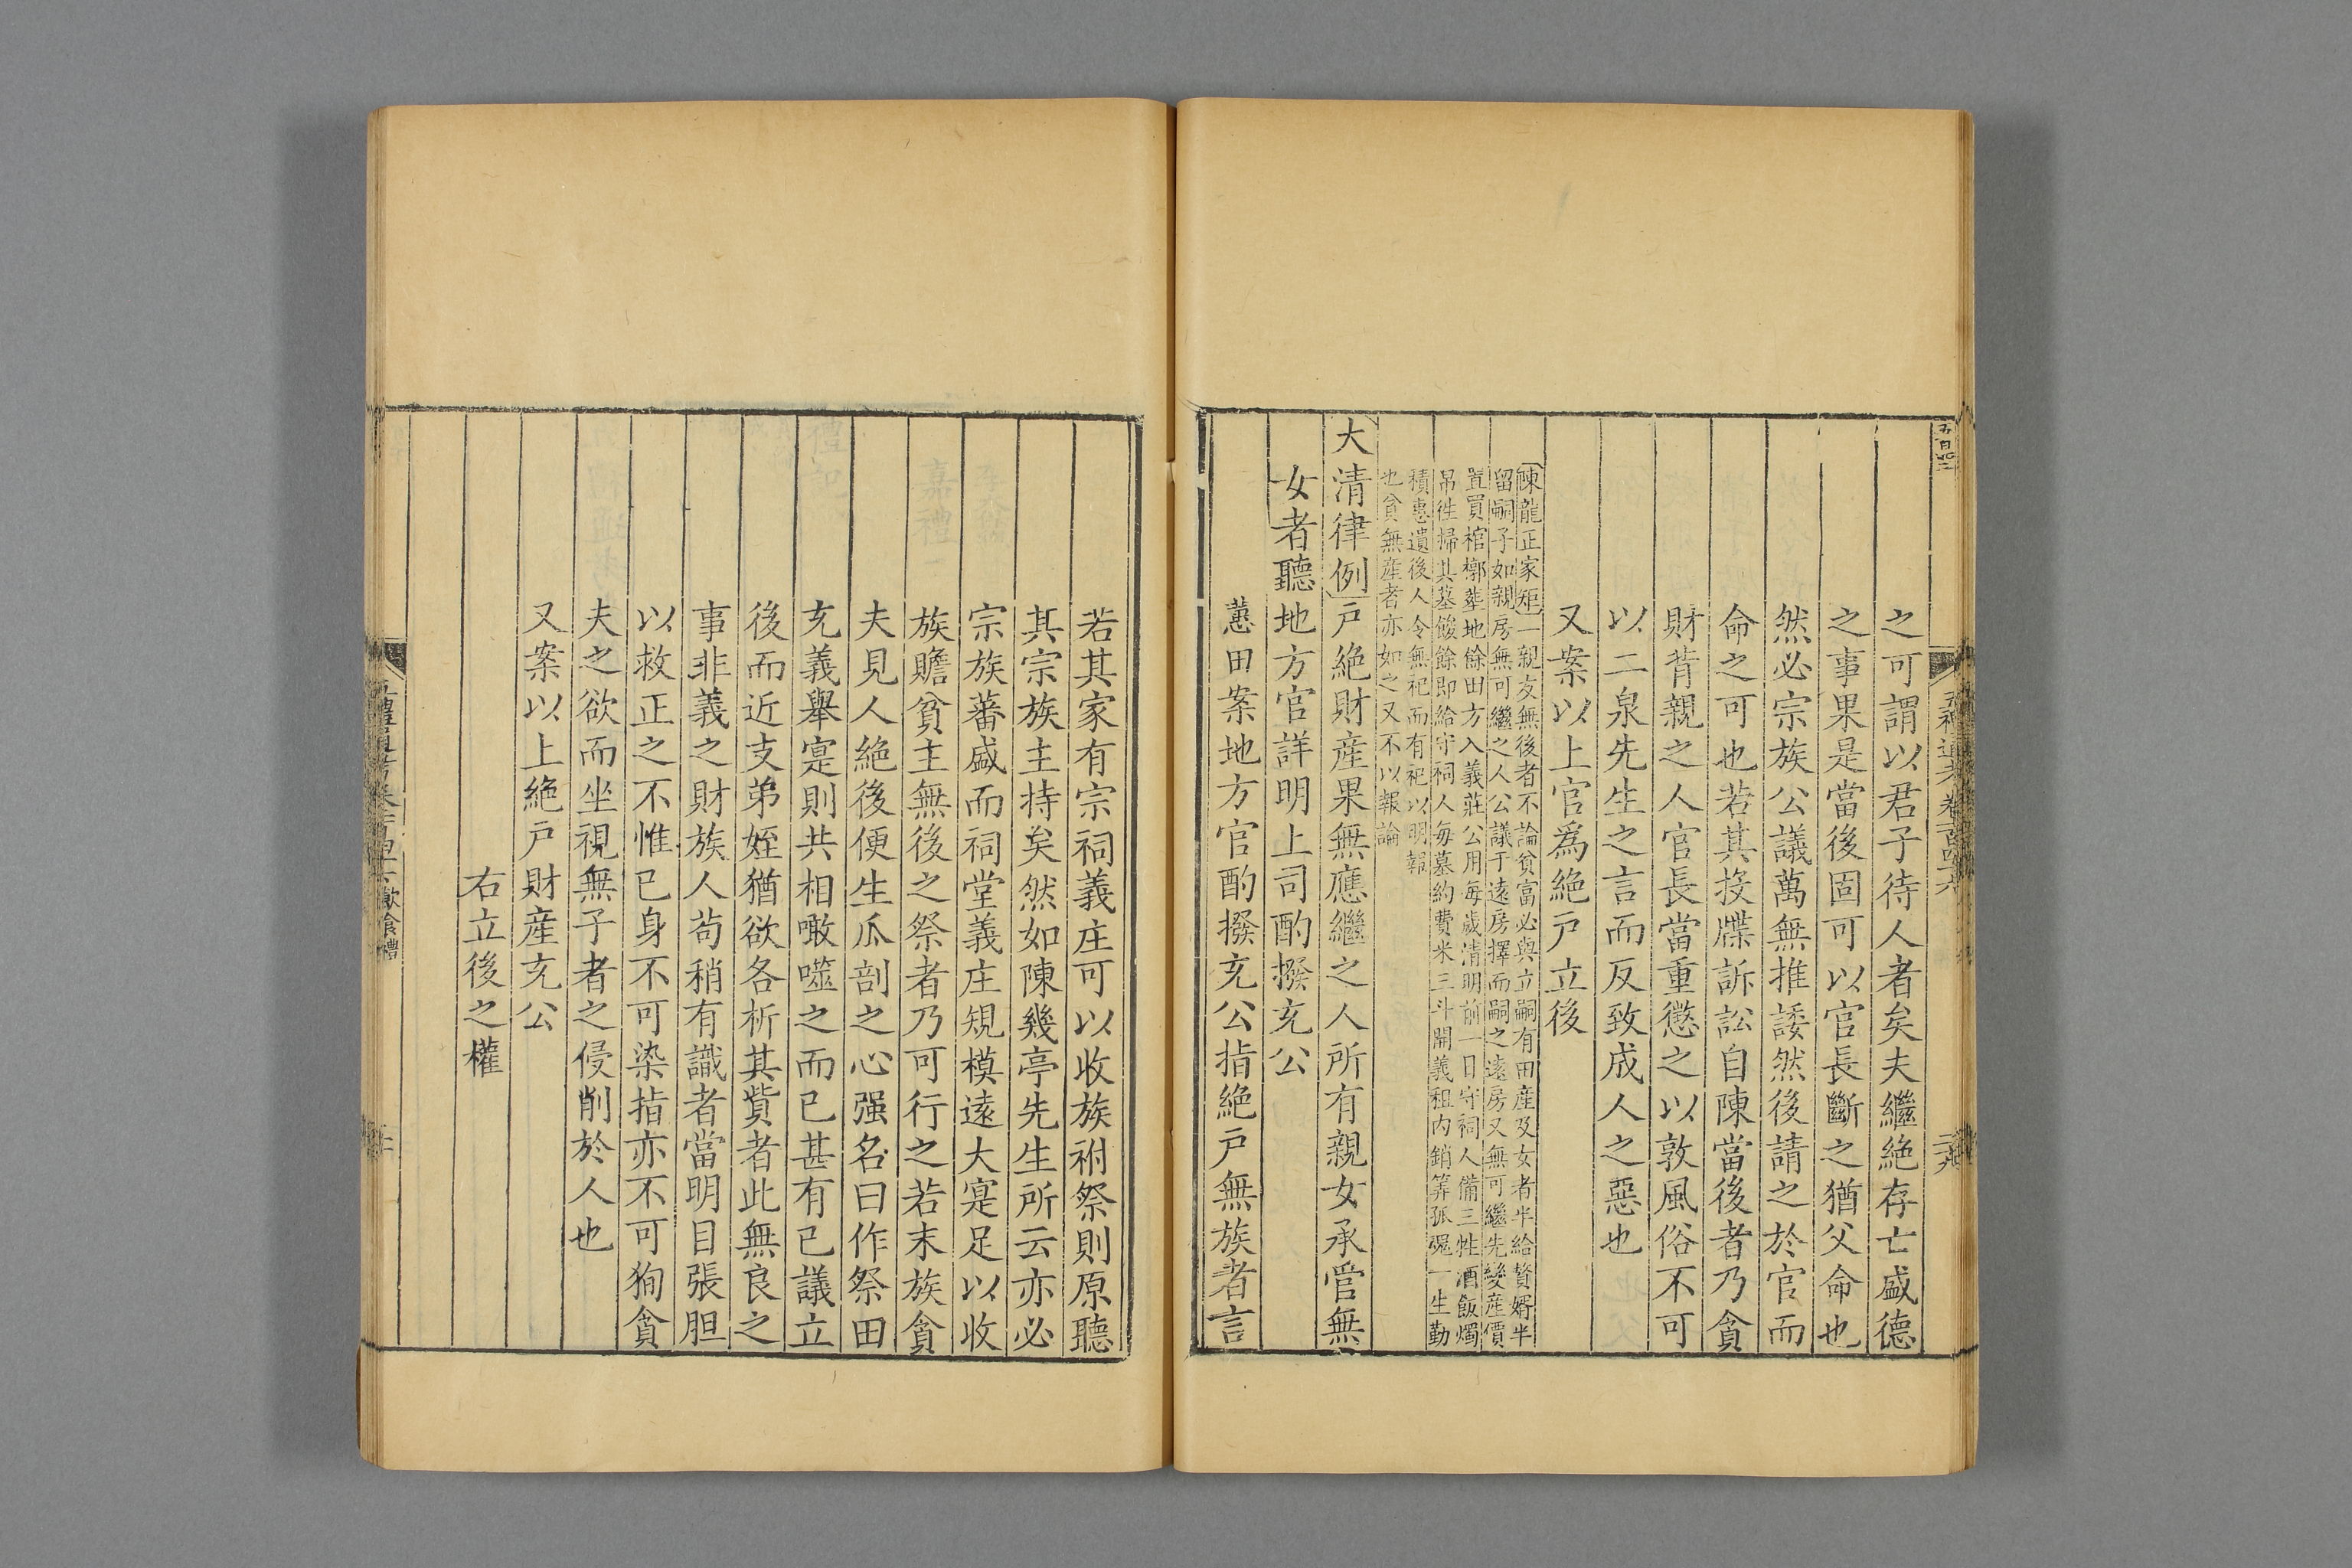 之可謂以君子待人者矣夫繼絶存亡盛德
之事果是當後固可以官長斷之猶父命也
然必宗族公議萬無推諉然後請之於官而
命之可也若其投牒訴訟自陳當後者乃貪
財背親之人官長當重懲之以敦風俗不可
以二泉先生之言而反致成人之惡也
又案以上官爲絶戸立後
陳龍正家矩一親友無後者不論貧富必與立嗣有田産及女者半給贅婿半
留嗣子如親房無可繼之人公議于遠房擇而嗣之遠房又無可繼先變産價
置買棺槨葬地餘田方入義莊公用每歲清明前一日守祠人備三牲酒飯燭
帛徃掃其墓餕餘即給守祠人每墓約費米三斗開義租内銷筭孤㷀一生勤
積惠遺後人令無祀而有祀以明報
也貧無産者亦如之又不以報論
大清律例戸絶財産果無應繼之人所有親女承管無
女者聽地方官詳明上司酌撥充公
蕙田案地方官酌撥充公指絶戸無族者言
若其家有宗祠義庄可以收族祔祭則原聽
其宗族主持矣然如陳幾亭先生所云亦必
宗族蕃盛而祠堂義庄規模遠大寔足以收
族贍貧主無後之祭者乃可行之若末族貪
夫見人絶後便生瓜剖之心强名曰作祭田
充義舉寔則共相噉噬之而已甚有已議立
後而近支弟姪猶欲各析其貲者此無良之
事非義之財族人苟稍有識者當明目張胆
以救正之不惟已身不可染指亦不可狥貪
夫之欲而坐視無子者之侵削於人也
又案以上絶戸財産充公
右立後之權